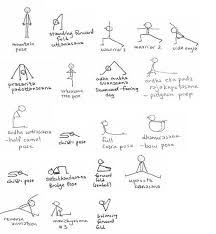 mountain
pose
standing forward
fold
uttanasana
warrior 1
warrior 2
side angle
prasarita
padottanasana
vrksasana
tree pose
adho mukha
svanasana
downward-facing
dog
ardha eka pada
rajakapotasana
- pidgeon prep
ardha ustrasana
- half camel
pose
child's pose
full
cobra pose
dhanurasana
- bow pose
child's pose
setubandhasana
Bridge pose
forward
fold
(seated)
upavista
konasana
reverse
marichyasana
# 3
forward
fold